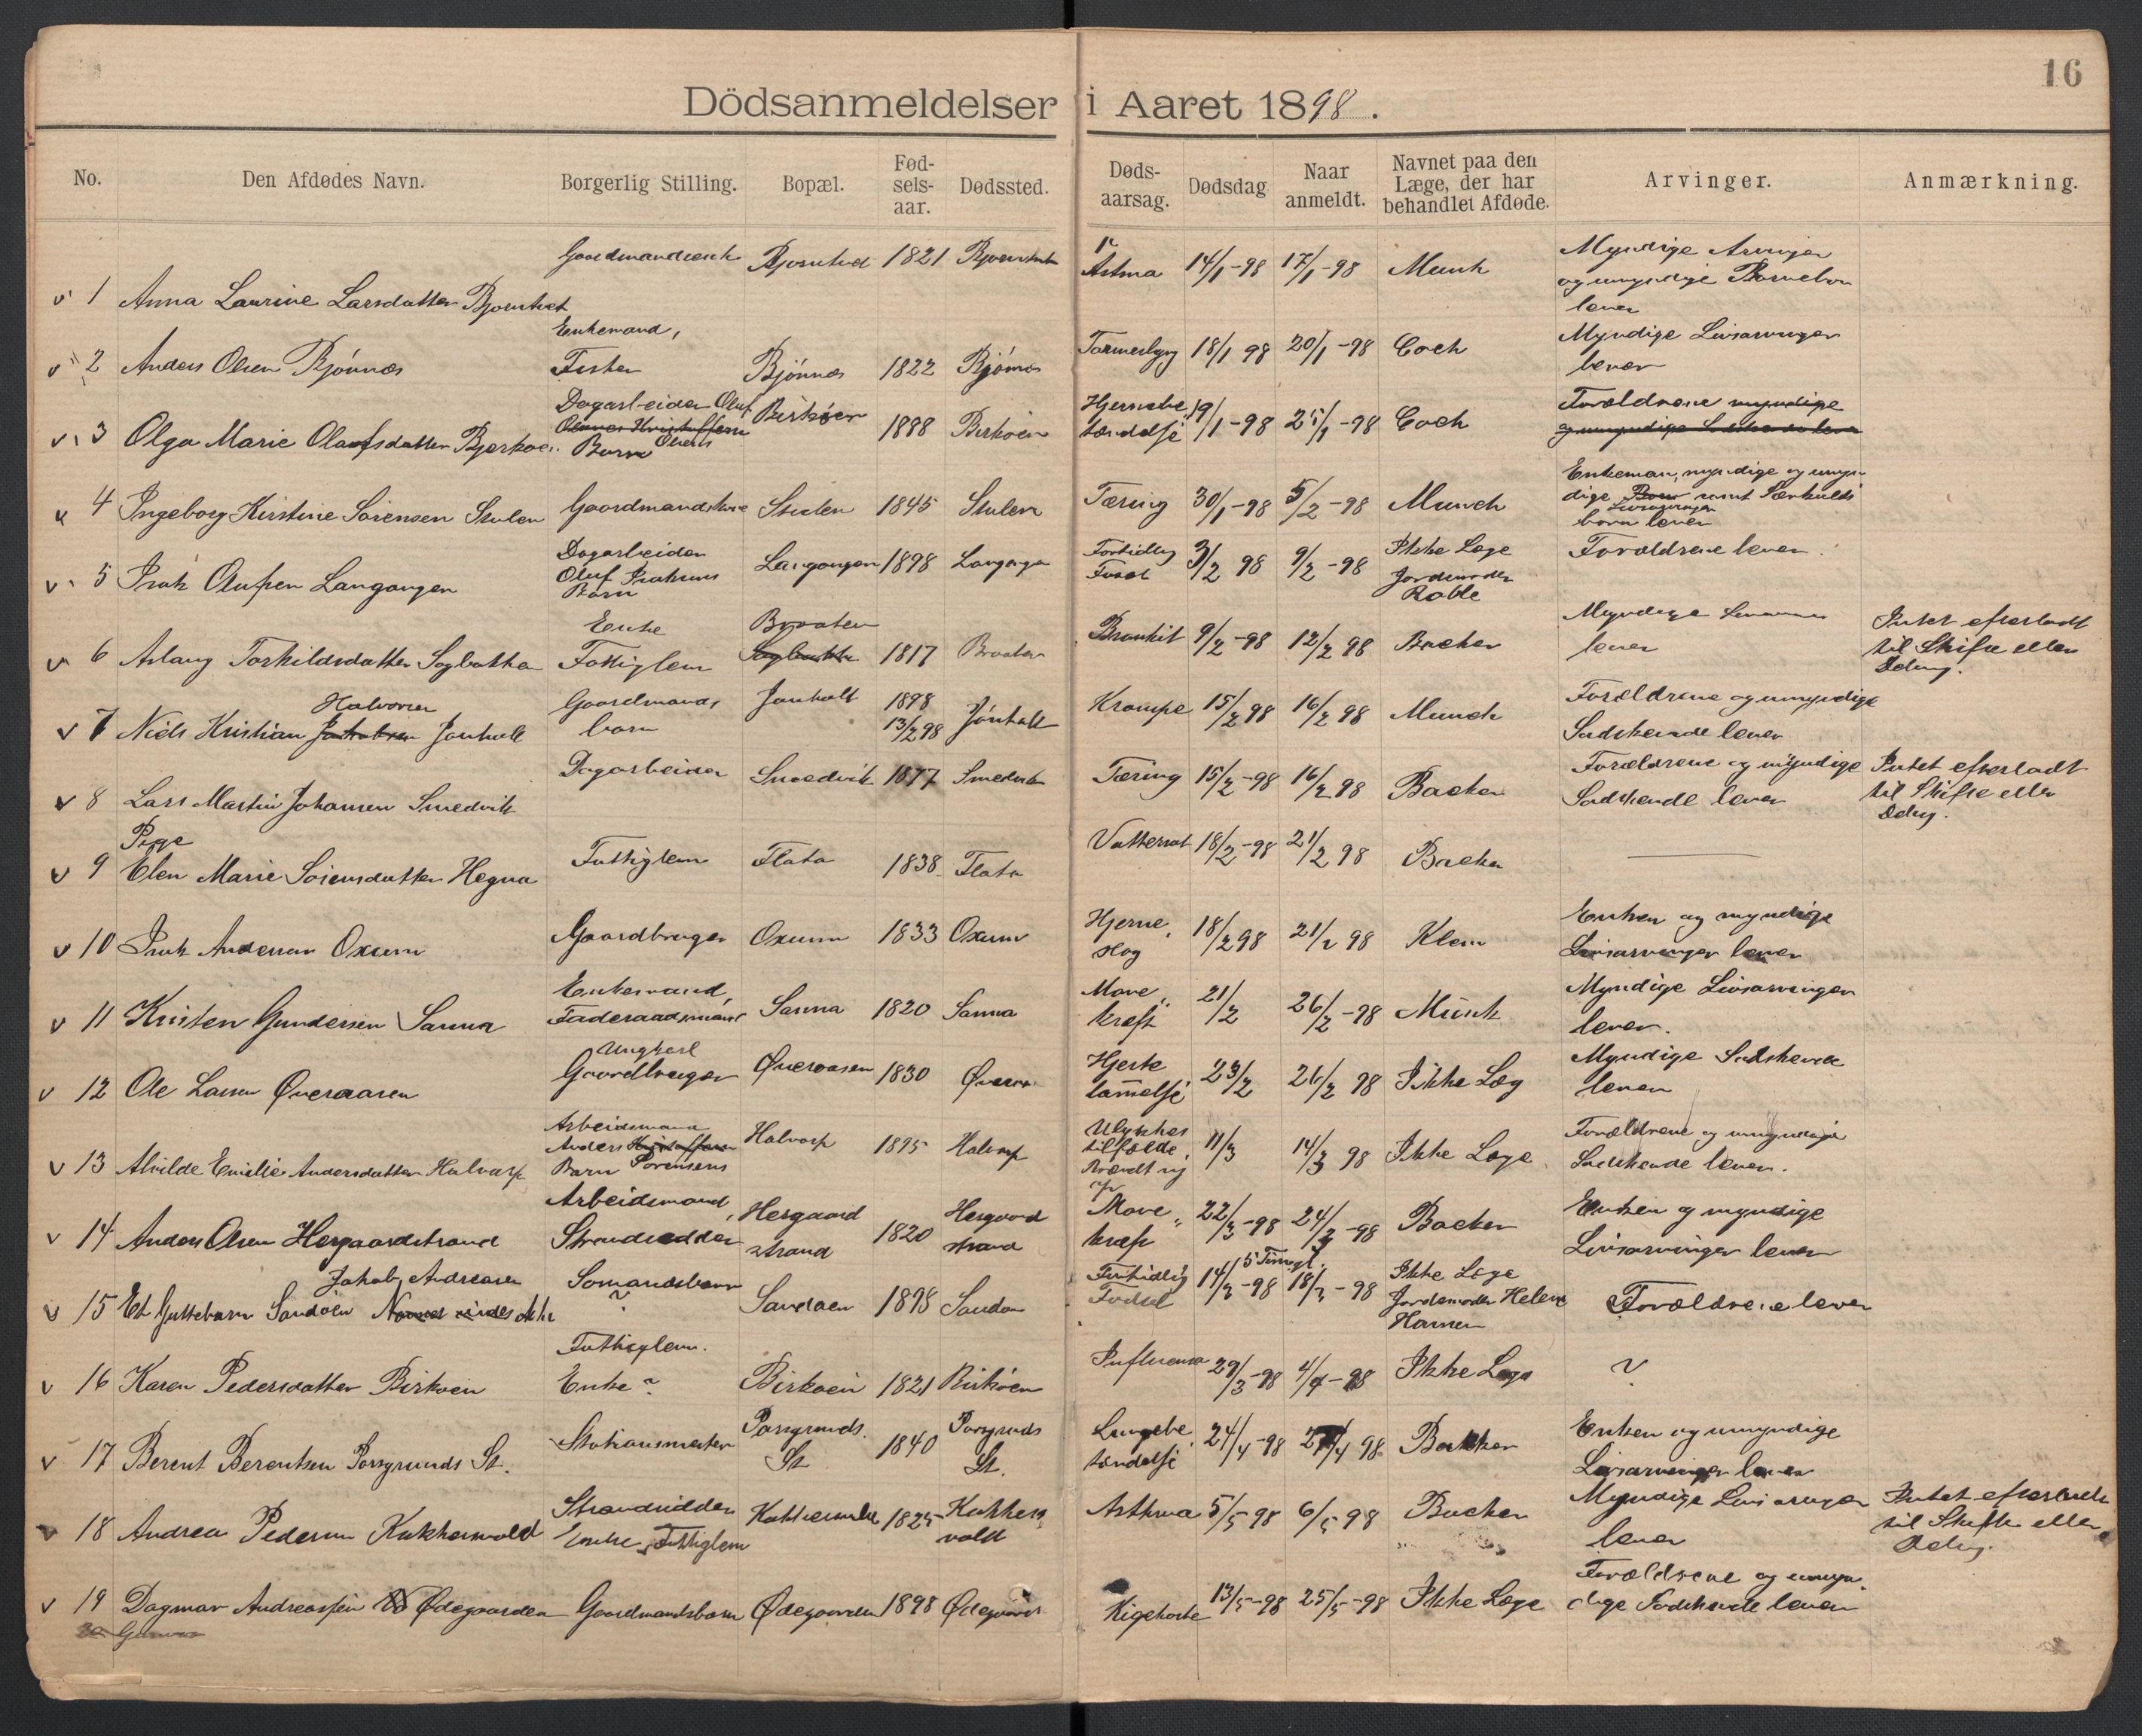 16
Dödsanmeldelser i Aaret 1898.
No. Den Afdødes Navn. Borgerlig Stilling. Bopæl. Fød-sels-aar. Dødssted. Døds-aarsag. Dødsdag Naar anmeldt. Navnet paa den Læge, der har behandlet Afdøde. Arvinger. Anmærkning.
v 1 Anna Laurine Larsdatter Bjorntvet 1821 Astma 14/1-98 17/1-98 Munk Myndige Arvinger og umyndige Børnebørn lever
v 2 Anders Olsen Bjönnes Enkemand, Fisker Bjönnes 1822 Bjönnes 18/1 98 20/1-98 Coch Myndige Livsarvinger lever
v 3 Olga Marie Olaufsdatter Bjerkoen Dagarbeider Oluf Olsens Barn Birköen 1888 Birköen Hjernebetændelse 19/1-98 25/1-98 Coch Forældrene myndige og umyndige Sødskende lever
v 4 Ingeborg Kirstine Sörensen Stulen Gaardmandskone Stulen 1845 Stulen Tæring 30/1-98 5/2-98 Munch Enkeman, myndige og umyndige Børn samt Særkulds Livsarvinger børn lever
v 5 Isak Olufsen Langangen Dagarbeider Oluf Isaksens Barn Langangen 1898 Langangen Fortidlig Fødsel 3/2 98 9/2-98 Ikke Læge Jordmoder Roble Forældrene lever.
v 6 Aslaug Torkildsdatter Sagbakken Enke Fattiglem Braaten Sagbakken 1817 Braaten Bronkit 9/2-98 12/2 98 Backer Myndige lever Intet efterladt til Skifte eller Deling.
v 7 Niels Kristian Jakobsen Halvorsen Jønholt Gaardmands barn Jønholt 1898 13/2 98 Jønholt Krampe 15/2 98 16/2 98 Munch Forældrene og umyndige Sødskende lever
v 8 Lars Martin Johansen Smedvik Dagarbeider Smedvik 1877 Smedvik Tæring 15/2-98 16/2 98 Backer Forældrene og myndige Sødskende lever Intet efterladt til Skifte eller Deling.
v 9 Pige Elen Marie Sörensdatter Hegna Fattiglem Flata 1838 Flata Vattersot 18/2-98 21/2 98 Backer
v 10 Isak Andersen Oxum Gaardbruger Oxum 1833 Oxum Hjerneslag 18/2 98 21/2 98 Klem Enken og myndige Livsarvinger lever
v 11 Kristen Gundersen Sanna Enkemand, Föderaadsmand Sanna 1820 Sanna Mavekræft 21/2 26/2-98 Münk Myndige Livsarvinger lever.
v 12 Ole Larsen Øveraasen Ungkarl Gaardbruger Øveraasen 1830 Øveraa Hjertelammelse 23/2 26/2 98 Ikke Læg Myndige Sødskende lever
v 13 Alvilde Emilie Andersdatter Halvarp Arbeidsmand Anders Kristoffersen Sörensens Barn Halvarp 1895 Halvarp Ulykkestilfælde. Brændt sig 11/3 14/3 98 Ikke Læge Forældrene og umyndige Sødskende lever.
v 14 Anders Olsen Hergaardstrand Arbeidsmand, Strandsidder Hergaard strand 1820 Hergaard strand Mavekræft 22/3-98 24/3-98 Backer Enken og myndige Livsarvinger lever
v 15 Et Guttebarn Sandöen Jakob Andreasen Sømandsbarn ? Sandöen 1898 Sandöen Fortidlig Fødsel 14/3-98 18/3-98 Ikke Læge Jordmoder Helene Hansen Forældrene lever
v 16 Karen Pedersdatter Birköen Fattiglem. Enke ? Birköen 1821 Birköen Influensa 29/3-98 4/4-98 Ikke Læge ?
v 17 Berent Berentsen Porsgrunds St. Stationsmester Porsgrunds St 1840 Porsgrunds St. Lungebetændelse 24/4-98 27/4 98 Backer Enken og umyndige Livsarvinger lever
v 18 Andrea Pedersen Kokkersvold Strandsidder Enke, Fattiglem 1825 Kokkersvold Asthma 5/5-98 6/5 98 Backer Myndige Livsarvinger lever Intet efterladt til Skifte eller Deling.
v 19 Dagmar Andreassen Ødegaarden Gaardmandsbarn Ødegaarden 1898 Ødegaarden Kighoste 13/5-98 25/5-98 Ikke Læge Forældrene og umyndige Sødskende lever